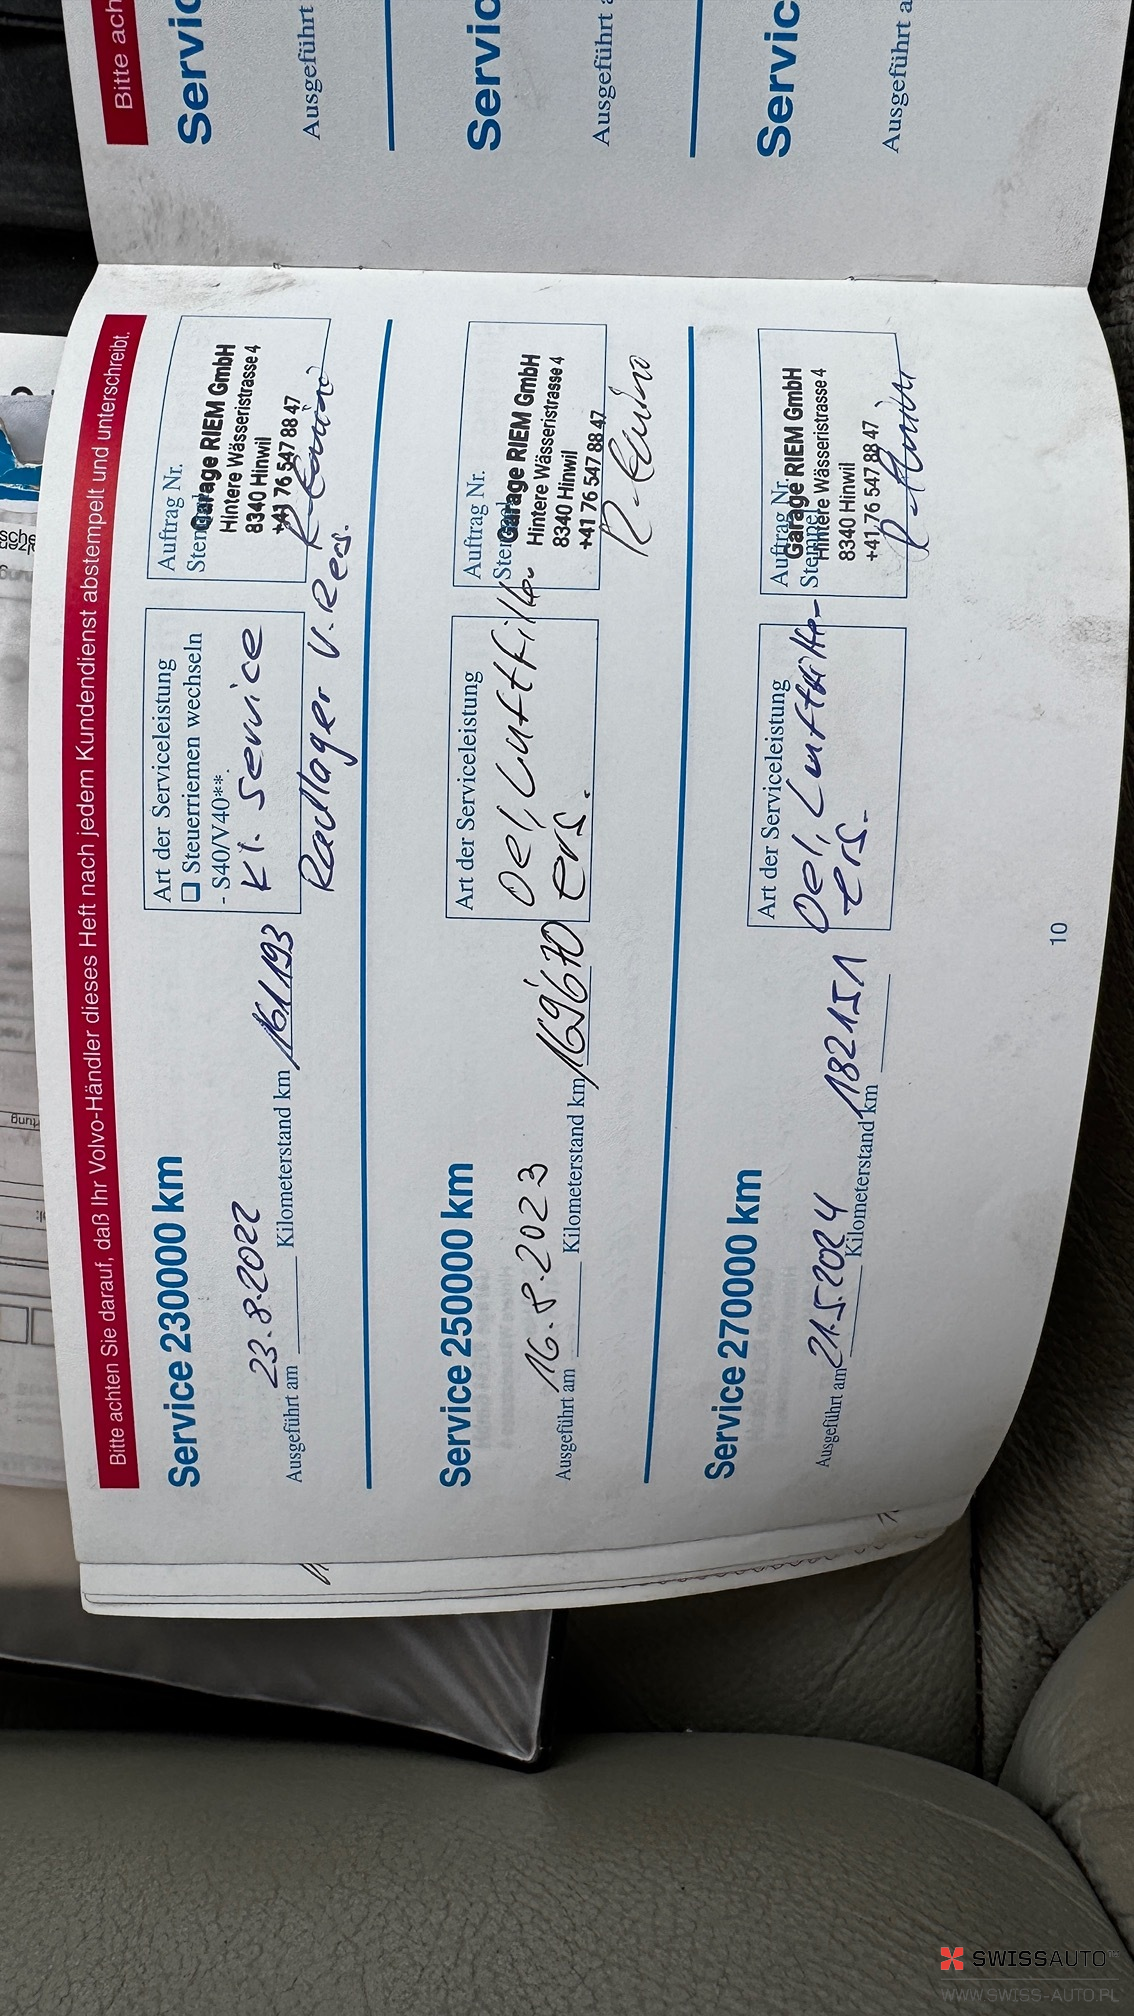 Bitte achten Sie darauf, daß Ihr Volvo-Händler dieses Heft nach jedem Kundendienst abstempelt und unterschreibt.
Service 230000 km
23.8.2022
Ausgeführt am
Kilometerstand km 161193
Art der Serviceleistung
❏ Steuerriemen wechseln
- S40/V40**
kl. Service
Radlager V. Rers.
Auftrag Nr.
Garage RIEM GmbH
Hintere Wässeristrasse 4
8340 Hinwil
+41 76 547 88 47
Service 250000 km
16.8.2023
Ausgeführt am
Kilometerstand km 169670
Art der Serviceleistung
Oel, Luftfilter
ers.
Auftrag Nr.
Garage RIEM GmbH
Hintere Wässeristrasse 4
8340 Hinwil
+41 76 547 88 47
Service 270000 km
Ausgeführt am 21.5.2024
Kilometerstand km 182151
Art der Serviceleistung
Oel, Luftfilter
ers.
Auftrag Nr.
Stempel
Garage RIEM GmbH
Hintere Wässeristrasse 4
8340 Hinwil
+41 76 547 88 47
10
Bitte ach
Servic
Ausgeführt
Servic
Ausgeführt a
Servic
Ausgeführt a
SWISSAUTO™
WWW.SWISS-AUTO.PL